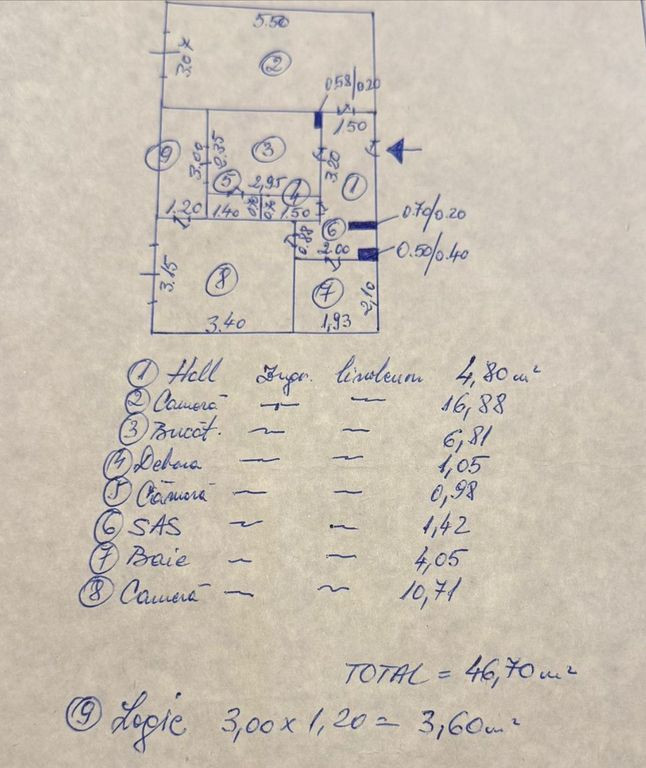 5.50
3.07
2
0.58/0.20
1.50
9
3.00
2.35
3
3.20
1
5
2,95
4
1.20
1.40
0.70
0.70
1.50
6
0.70/0.20
0.88
2.00
0.50/0.40
3.15
8
7
2,10
3.40
1,93
1 Hall Zugr. linoleum 4,80 m²
2 Cameră -〃- — 16,88
3 Bucăt. ~ — 6,81
4 Debara — — 1,05
5 Cămară — — 0,98
6 SAS ~ - 1,42
7 Baie ~ — 4,05
8 Cameră — ~ 10,71
TOTAL = 46,70 m²
9 Logie 3,00 x 1,20 = 3,60 m²